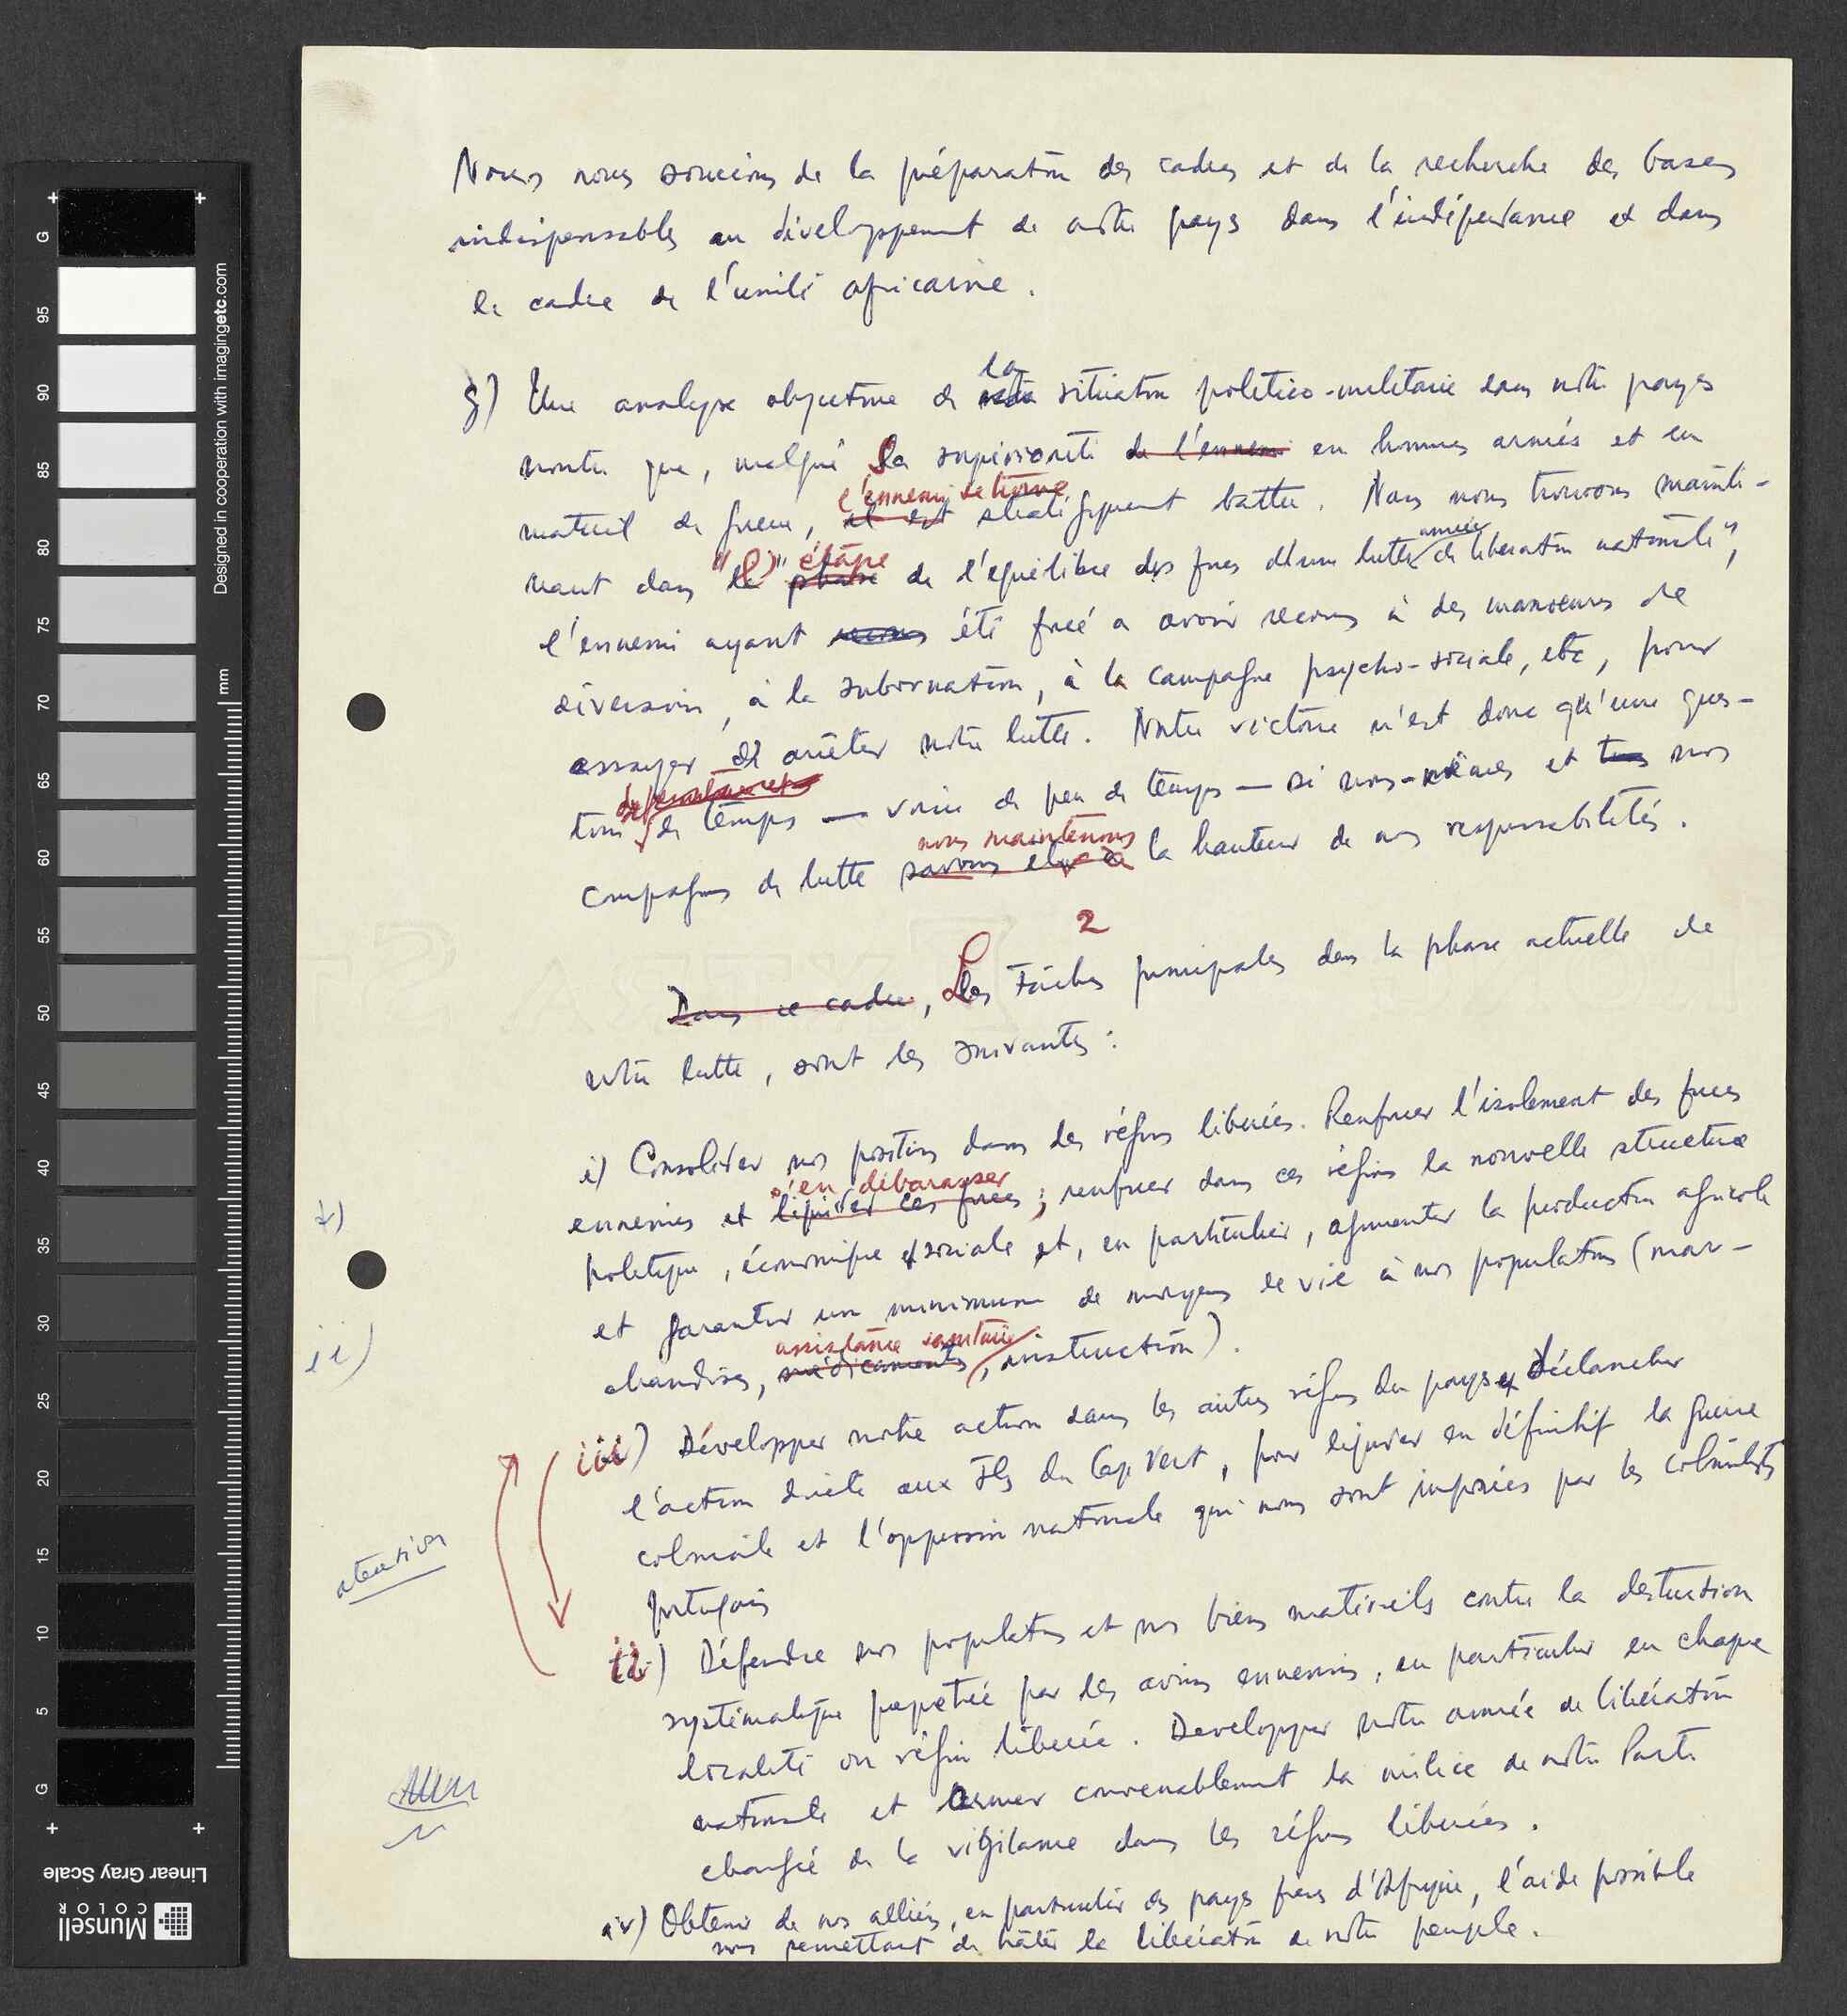 Nous nous soucions de la préparation des cadres et de la recherche des bases
indispensables au développement de notre pays dans l'indépendance et dans
le cadre de l'unité africaine.
g) Une analyse objective de la situation politico-militaire dans notre pays
montre que, malgré sa supériorité de l'ennemi en hommes armés et en
l'ennemi se trouve
matériel de guerre, il est stratégiquement battu. Nous nous trouvons mainte-
"l'étape armée
nant dans la phase de l'équilibre des forces d'une lutte de libération nationale",
l'ennemi ayant recours été forcé a avoir recours à des manoeuvres de
diversion, à la subornation, à la campagne psycho-sociale, etc, pour
essayer d'arrêter notre lutte. Notre victoire n'est donc qu'une ques-
tion de temps — voire de peu de temps — si nous-mêmes et tous nos
nous maintenons
compagnons de lutte savons être à la hauteur de nos responsabilités.
2
Dans ce cadre, Les Tâches principales dans la phase actuelle de
notre lutte, sont les suivantes:
i) Consolider nos positions dans les régions libérées. Renforcer l'isolement des forces
s'en débarasser
ennemies et liquider ces forces; renforcer dans ces régions la nouvelle structure
politique, économique et sociale et, en particulier, augmenter la production agricole
et garantir un minimum de moyens de vie à nos populations (mar-
assistance sanitaire
chandises, médicaments, instruction).
iii) Développer notre action dans les autres régions du pays et déclancher
l'action directe aux Iles du Cap Vert, pour liquider en définitif la guerre
coloniale et l'oppression nationale qui nous sont imposées par les colonialistes
portugais
ii) Défendre nos populations et nos biens matériels contre la destruction
systématique perpetrée par les avions ennemis, en particulier en chaque
localité ou région libérée. Developper notre armée de libération
nationale et armer convenablement la milice de notre Parti
chargée de la vigilance dans les régions libérées.
iv) Obtenir de nos alliés, en particulier des pays frères d'Afrique, l'aide possible
nous permettant de hâter la libération de notre peuple.
ii)
atencion
Designed in cooperation with imagingetc.com
mm
G 95 90 85 80 75 70 65 60 55 50 45 40 35 30 25 20 15 10 5 G
Linear Gray Scale
Munsell
COLOR